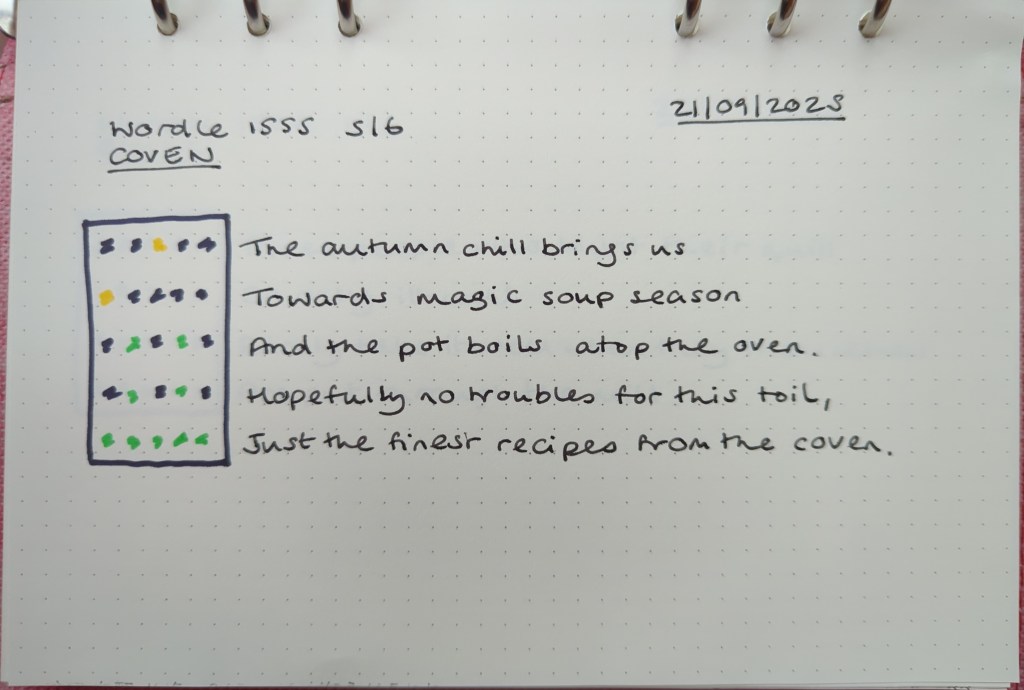 21/09/2025
Wordle 1555 5/6
COVEN
The autumn chill brings us
Towards magic soup season
And the pot boils atop the oven.
Hopefully no troubles for this toil,
Just the finest recipes from the coven.